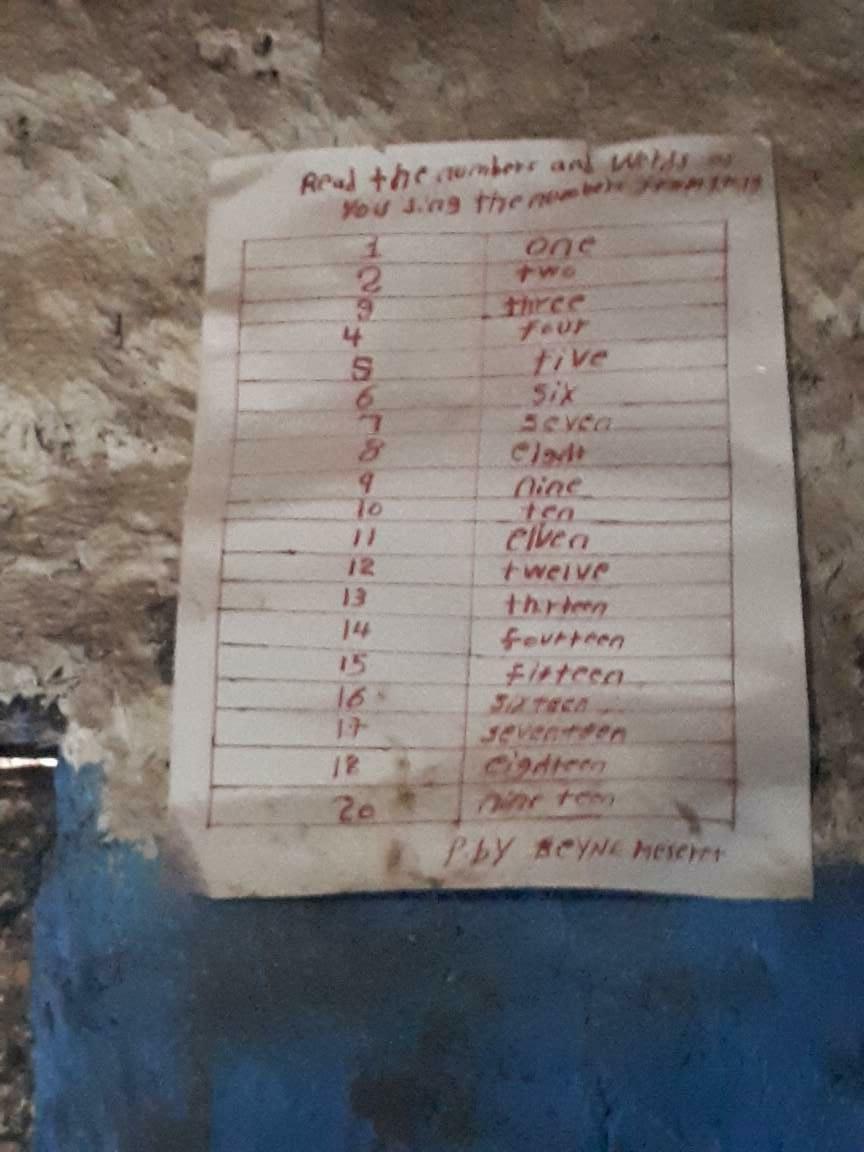 Read the numbers and words as
you sing the numbers song
1 one
2 two
3 three
4 four
5 five
6 six
7 seven
8 eight
9 nine
10 ten
11 elven
12 twelve
13 thirteen
14 fourteen
15 fifteen
16 sixteen
17 seventeen
18 eighteen
20 nine teen
P.by Beyne Meseret